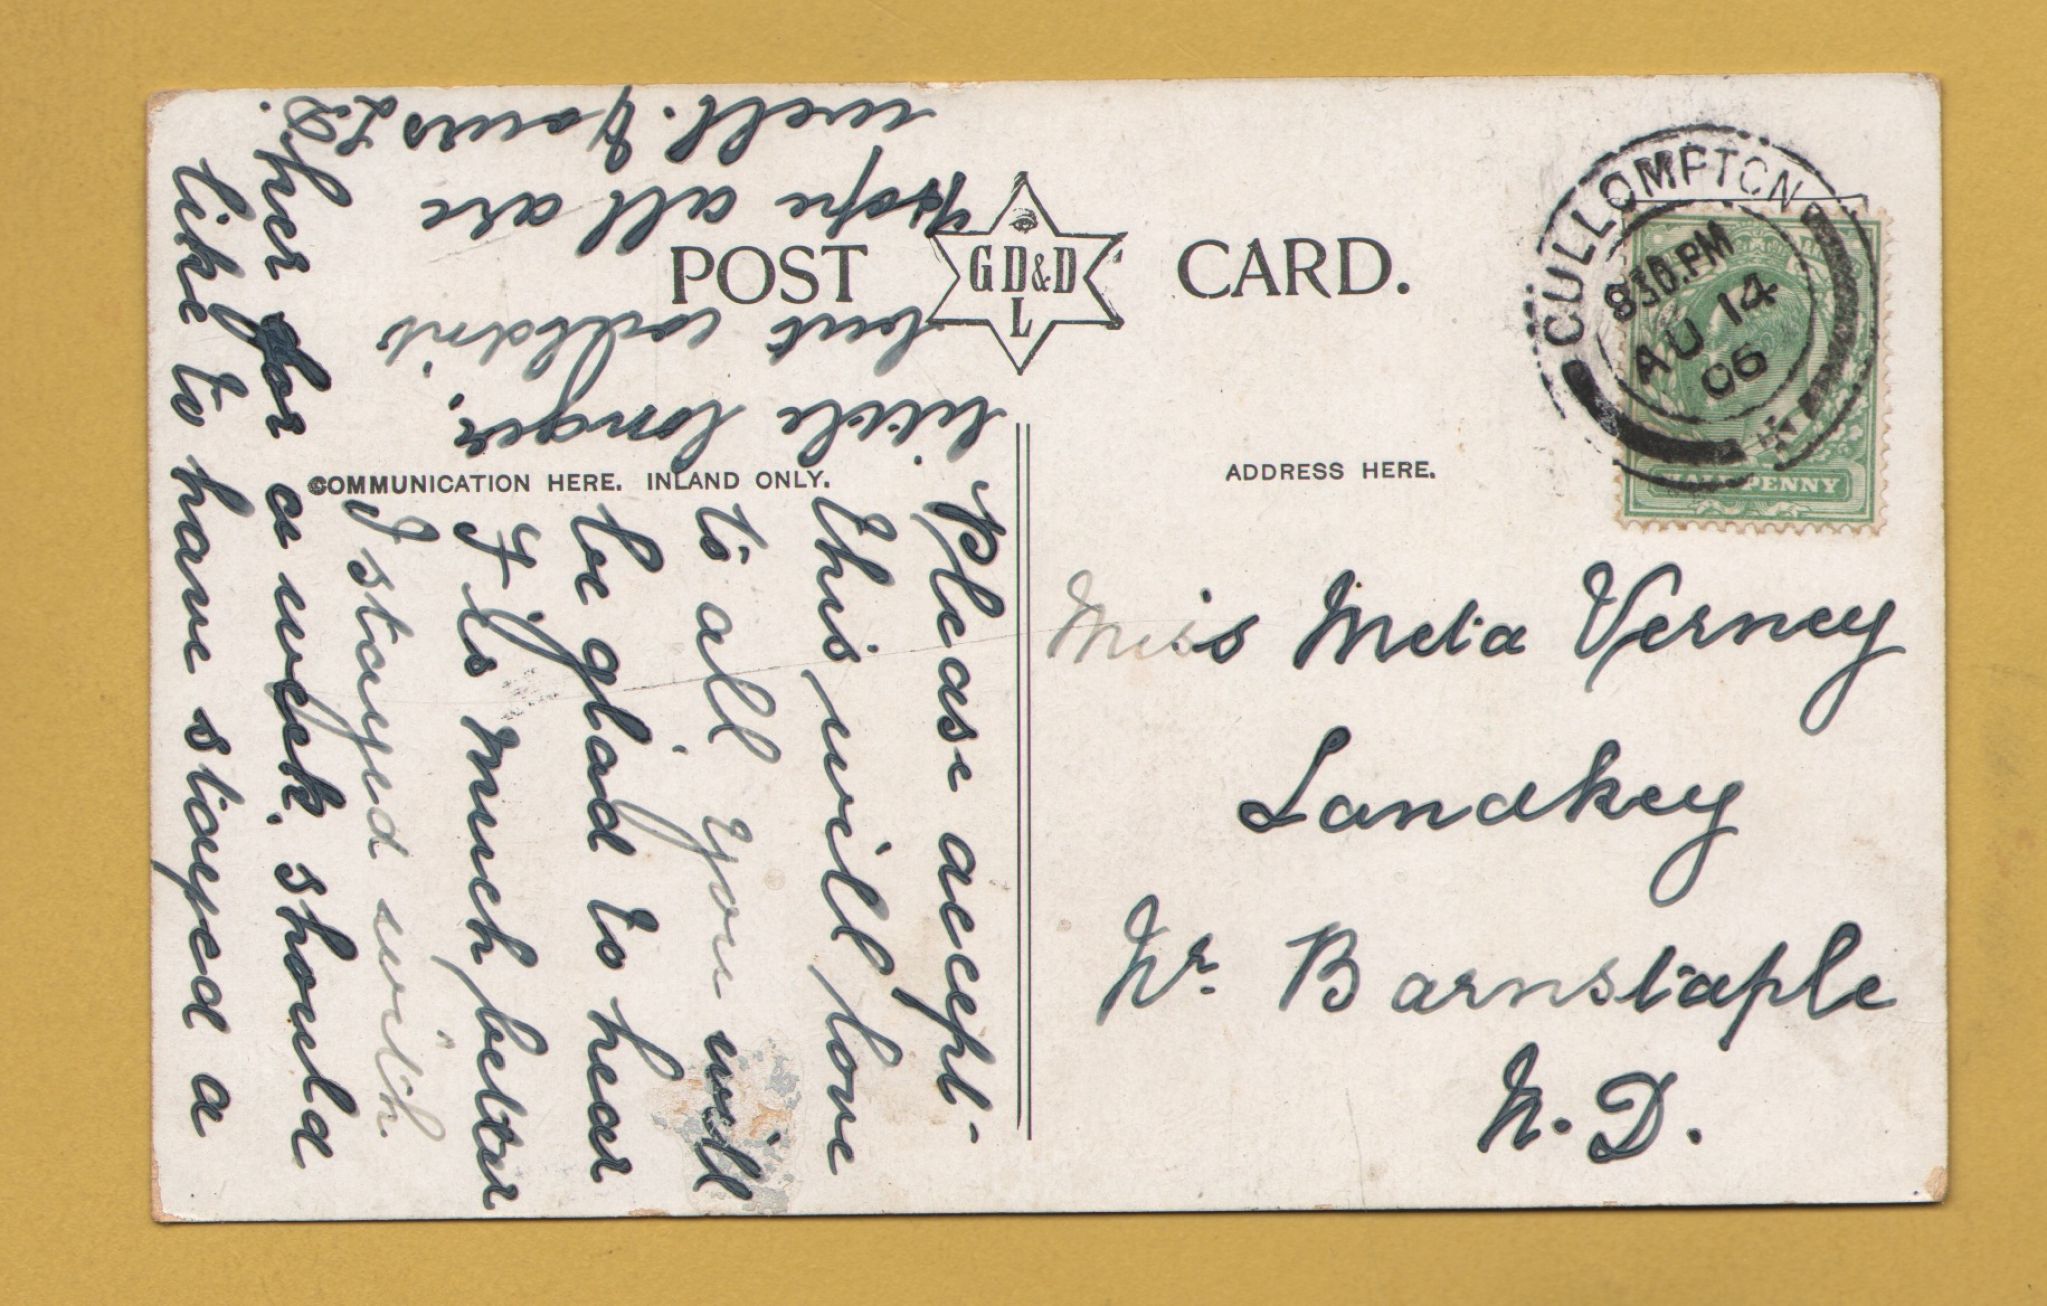 POST CARD.
GD&D
L
COMMUNICATION HERE. INLAND ONLY.
ADDRESS HERE.
CULLOMPTON
8 30.PM
AU 14
06
HALFPENNY
Please accept-
this will love
to all you will
be glad to hear
F is much better
I stayed with
her for a week. should
like to have stayed a
little longer.
but couldn't
Hope all are
well. Yours
L.D.
Miss Meta Verney
Landkey
Nr. Barnstaple
N. D.